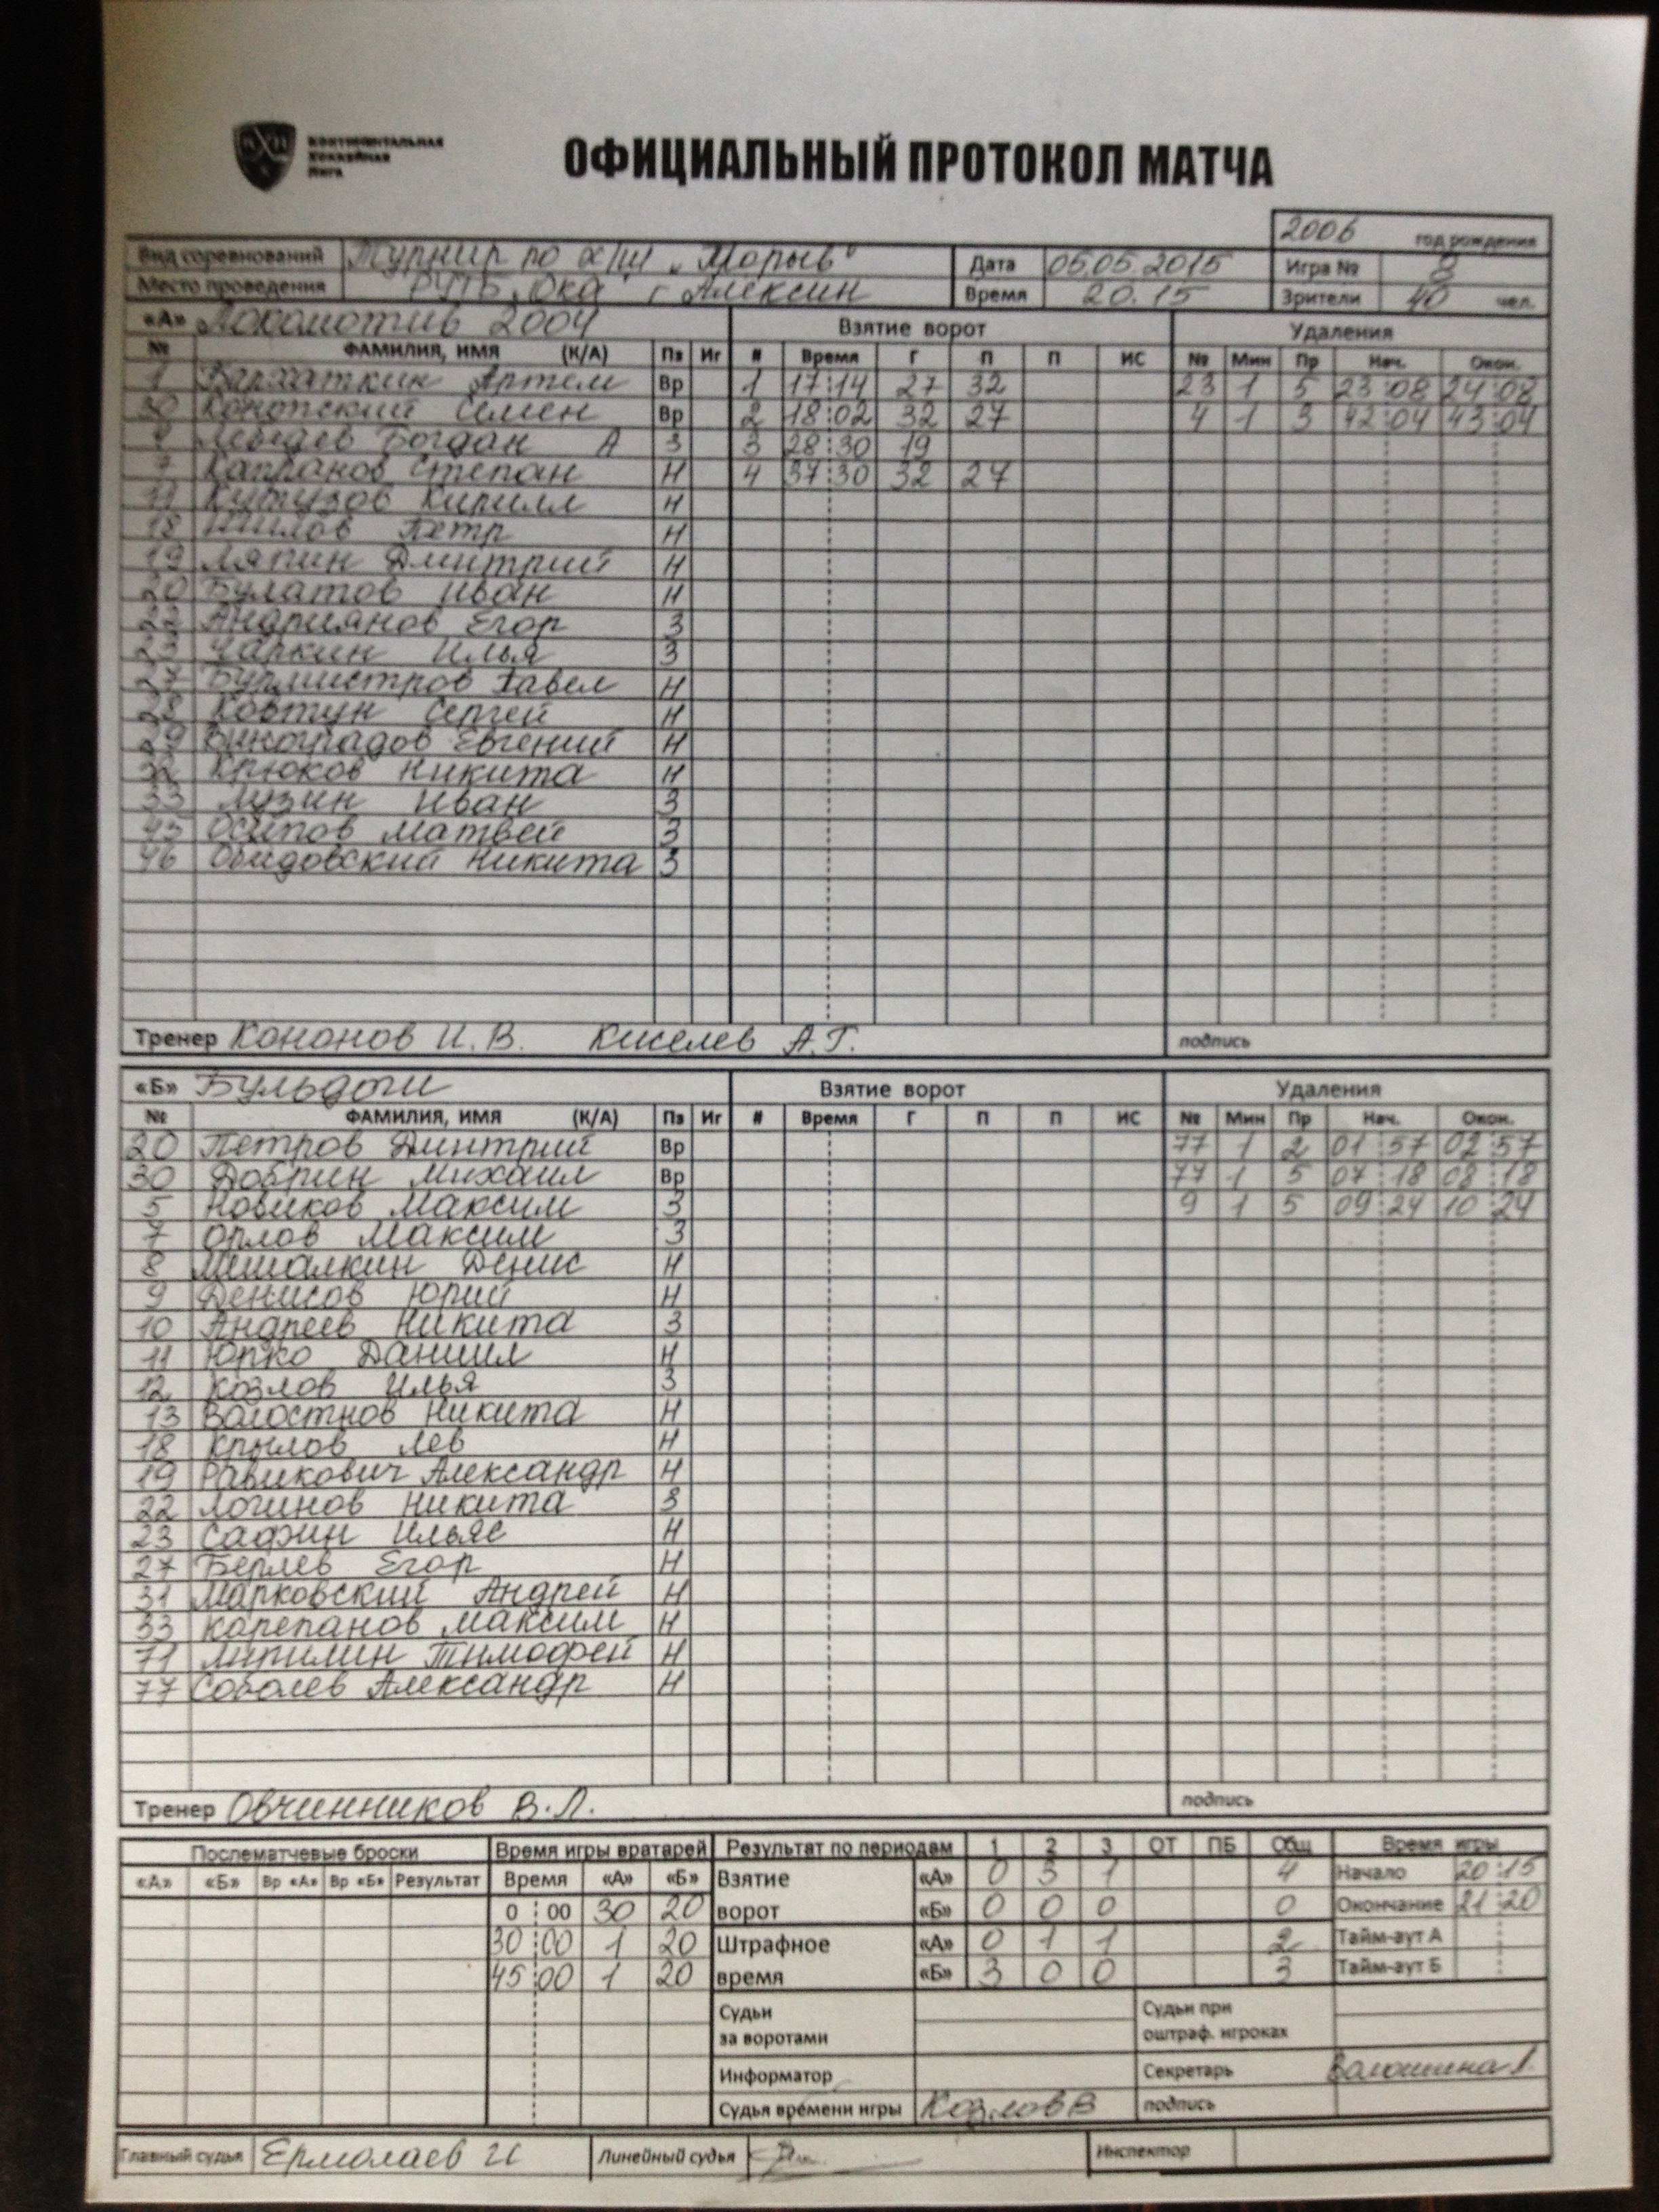 КОНТИНЕНТАЛЬНАЯ
ХОККЕЙНАЯ
ЛИГА
ОФИЦИАЛЬНЫЙ ПРОТОКОЛ МАТЧА
2006 год рождения
Вид соревнований Турнир по х/ш „Порыв" Дата 05.05.2015 Игра № 8
Место проведения "Ока" г Алексин Время 20.15 Зрители 40 чел.
«А» Локомотив 2004 Взятие ворот Удаления
№ ФАМИЛИЯ, ИМЯ (К/А) Пз Иг # Время Г П П ИС № Мин Пр Нач. Окон.
1 Артем Вр 1 17:14 27 32 23 1 5 23:08 24:08
30 Семен Вр 2 18:02 32 27 4 1 3 42:04 43:04
Лебедев Богдан А З 3 28:30 19
7 Капланов Степан Н 4 37:30 32 27
11 Кутузов Кирилл Н
18 Шилов Петр Н
19 Ляпин Дмитрий Н
20 Булатов Иван Н
22 Андриянов Егор З
23 Чаркин Илья З
27 Бурмистров Павел Н
28 Ковтун Сергей Н
29 Виноградов Евгений Н
32 Крюков Никита Н
33 Лузин Иван З
43 Осипов Матвей З
46 Обидовский Никита З
Тренер Кононов И.В. Киселев А.Г. подпись
«Б» Бульдоги Взятие ворот Удаления
№ ФАМИЛИЯ, ИМЯ (К/А) Пз Иг # Время Г П П ИС № Мин Пр Нач. Окон.
20 Петров Дмитрий Вр 77 1 2 01:57 02:57
30 Добрин Михаил Вр 77 1 5 07:18 08:18
5 Новиков Максим З 9 1 5 09:24 10:24
7 Орлов Максим З
8 Мишалкин Денис Н
9 Денисов Юрий Н
10 Андреев Никита З
11 Юрко Даниил Н
12 Козлов Илья З
13 Никита Н
18 Крылов Лев Н
19 Равикович Александр Н
22 Логинов Никита З
23 Сафин Ильяс Н
27 Берлев Егор Н
31 Марковский Андрей Н
33 Карепанов Максим Н
71 Тимофей Н
77 Соболев Александр Н
Тренер Овчинников В.Л. подпись
Послематчевые броски Время игры вратарей Результат по периодам 1 2 3 ОТ ПБ Общ Время игры
«А» «Б» Вр «А» Вр «Б» Результат Время «А» «Б» Взятие «А» 0 3 1 4 Начало 20:15
0:00 30 20 ворот «Б» 0 0 0 0 Окончание 21:20
30:00 1 20 Штрафное «А» 0 1 1 2 Тайм-аут А
45:00 1 20 время «Б» 3 0 0 3 Тайм-аут Б
Судьи за воротами Судьи при оштраф. игроках
Информатор Секретарь Волошина Л.
Судья времени игры Козлов В подпись
Главный судья Ермолаев И Линейный судья Инспектор